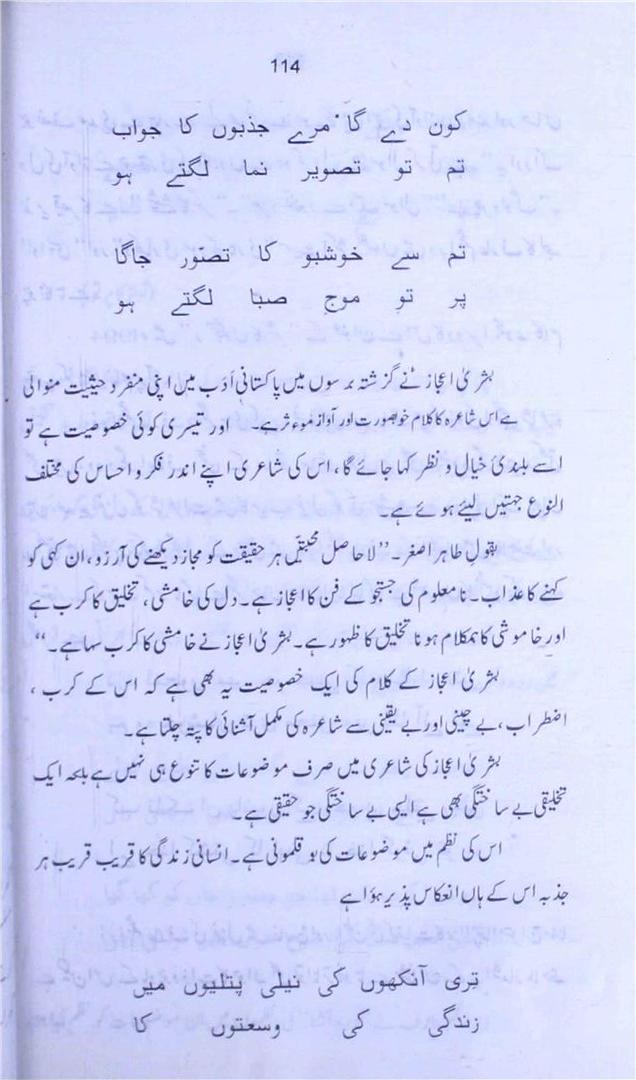 114
کون دے گا مرے جذبوں کا جواب
تم تو تصویر نما لگتے ہو
تم سے خوشبو کا تصّور جاگا
پر تو موجِ صبا لگتے ہو
بشریٰ اعجاز نے گزشتہ برسوں میں پاکستانی اَدب میں اپنی منفرد حیثیت منوالی
ہے اس شاعرہ کا کلام خوبصورت اور آواز موءثر ہے۔ اور تیسری کوئی خصوصیت ہے تو
اسے بلندیٔ خیال و نظر کہا جائے گا، اس کی شاعری اپنے اندر فکر و احساس کی مختلف
النوع جہتیں لیئے ہوئے ہے۔
بقولِ طاہر اصغر۔ ’’لاحاصل محبتیں ہر حقیقت کو مجاز دیکھنے کی آرزو، ان کہی کو
کہنے کا عذاب۔ نامعلوم کی جستجو کے فن کا اعجاز ہے۔ دل کی خامشی، تخلیق کا کرب ہے
اور خاموشی کا ہمکلام ہونا تخلیق کا ظہور ہے۔ بشریٰ اعجاز نے خامشی کا کرب سہا ہے۔‘‘
بشریٰ اعجاز کے کلام کی ایک خصوصیت یہ بھی ہے کہ اس کے کرب،
اضطراب، بے چینی اور بے یقینی سے شاعرہ کی مکمل آشنائی کا پتہ چلتا ہے۔
بشریٰ اعجاز کی شاعری میں صرف موضوعات کا تنوع ہی نہیں ہے بلکہ ایک
تخلیقی بے ساختگی بھی ہے ایسی بے ساختگی جو حقیقی ہے۔
اس کی نظم میں موضوعات کی بو قلمونی ہے۔ انسانی زندگی کا قریب قریب ہر
جذبہ اس کے ہاں انعکاس پذیر ہؤا ہے
تِری آنکھوں کی نیلی پتلیوں میں
زندگی کی وسعتوں کا